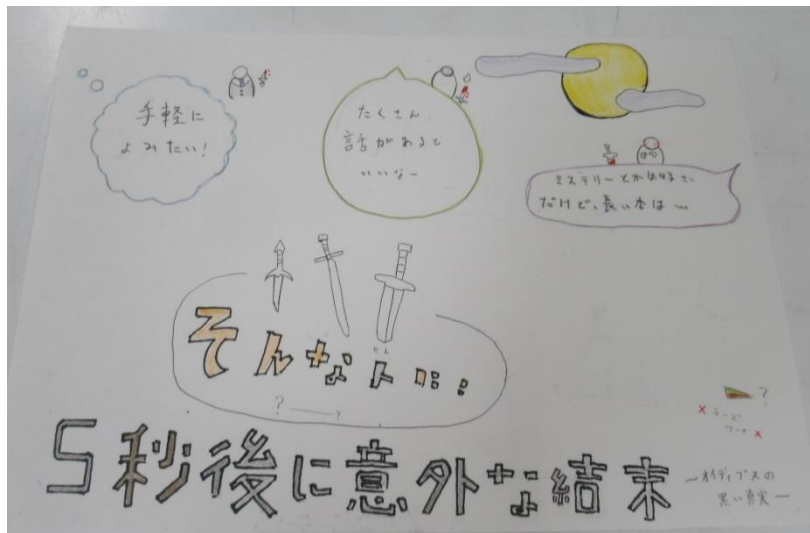 手軽に
よみたい!
たくさん
話があると
いいなー
ミステリーとか好きで、
だけど、長い本は…
そんな人に:
ヒト
?――?
?
× チーズ
ケーキ ×
5秒後に意外な結末
~オイディプスの
黒い真実~